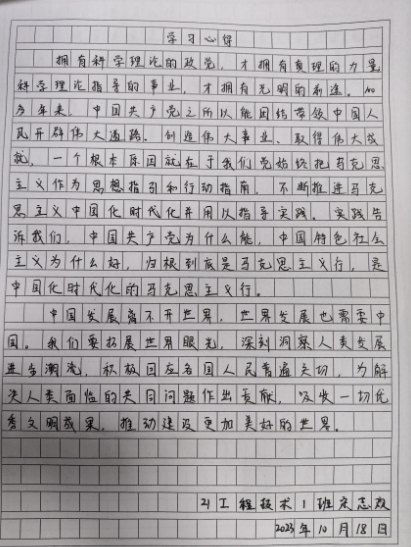 学习心得
拥有科学理论的政党，才拥有真理的力量
科学理论指导的事业，才拥有光明的前途。100
多年来，中国共产党之所以能团结带领中国人
民开辟伟大道路、创造伟大事业、取得伟大成
就，一个根本原因就在于我们党始终把马克思
主义作为思想指引和行动指南，不断推进马克
思主义中国化时代化并用以指导实践。实践告
诉我们，中国共产党为什么能，中国特色社会
主义为什么好，归根到底是马克思主义行，是
中国化时代化的马克思主义行。
中国发展离不开世界，世界发展也需要中
国。我们要拓展世界眼光，深刻洞察人类发展
进步潮流，积极回应各国人民普遍关切，为解
决人类面临的共同问题作出贡献，吸收一切优
秀文明成果，推动建设更加美好的世界。
21工程技术1班宋志
2023年10月18日